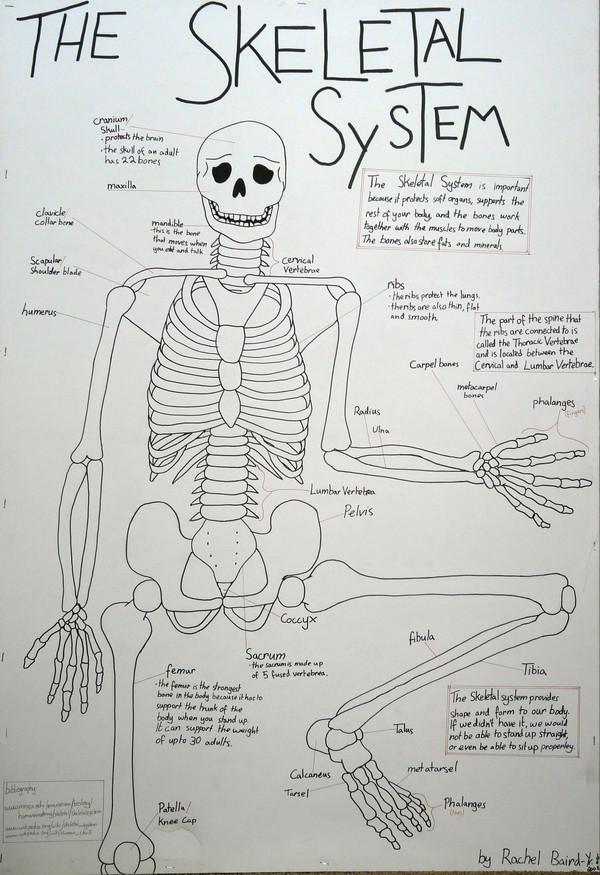 THE SKELETAL
SYSTEM
cranium/
Skull
• protects the brain
• the skull of an adult
has 22 bones
maxilla
The Skeletal System is important
because it protects soft organs, supports the
rest of your body, and the bones work
together with the muscles to move body parts.
The bones also store fats and minerals.
clavicle/
collar bone
mandible
this is the bone
that moves when
you eat and talk
Cervical
Vertebrae
Scapular/
Shoulder blade
ribs
• the ribs protect the lungs.
• the ribs are also thin, flat
and smooth.
humerus
The part of the spine that
the ribs are connected to is
called the Thoracic Vertebrae
and is located between the
Cervical and Lumbar Vertebrae.
Carpel bones
metacarpel
bones
phalanges
(fingers)
Radius
Ulna
Lumbar Vertebrea
Pelvis
Coccyx
Sacrum
• the sacrum is made up
of 5 fused vertebrea.
fibula
Tibia
femur
• the femur is the strongest
bone in the body because it has to
support the trunk of the
body when you stand up.
It can support the weight
of upto 30 adults.
The Skeletal system provides
shape and form to our body.
If we didn't have it, we would
not be able to stand up straight,
or even be able to sit up properley.
Talus
Calcaneus
Tarsel
metatarsel
Phalanges
(toes)
Patella/
Knee Cap
bibliography
by Rachel Baird-